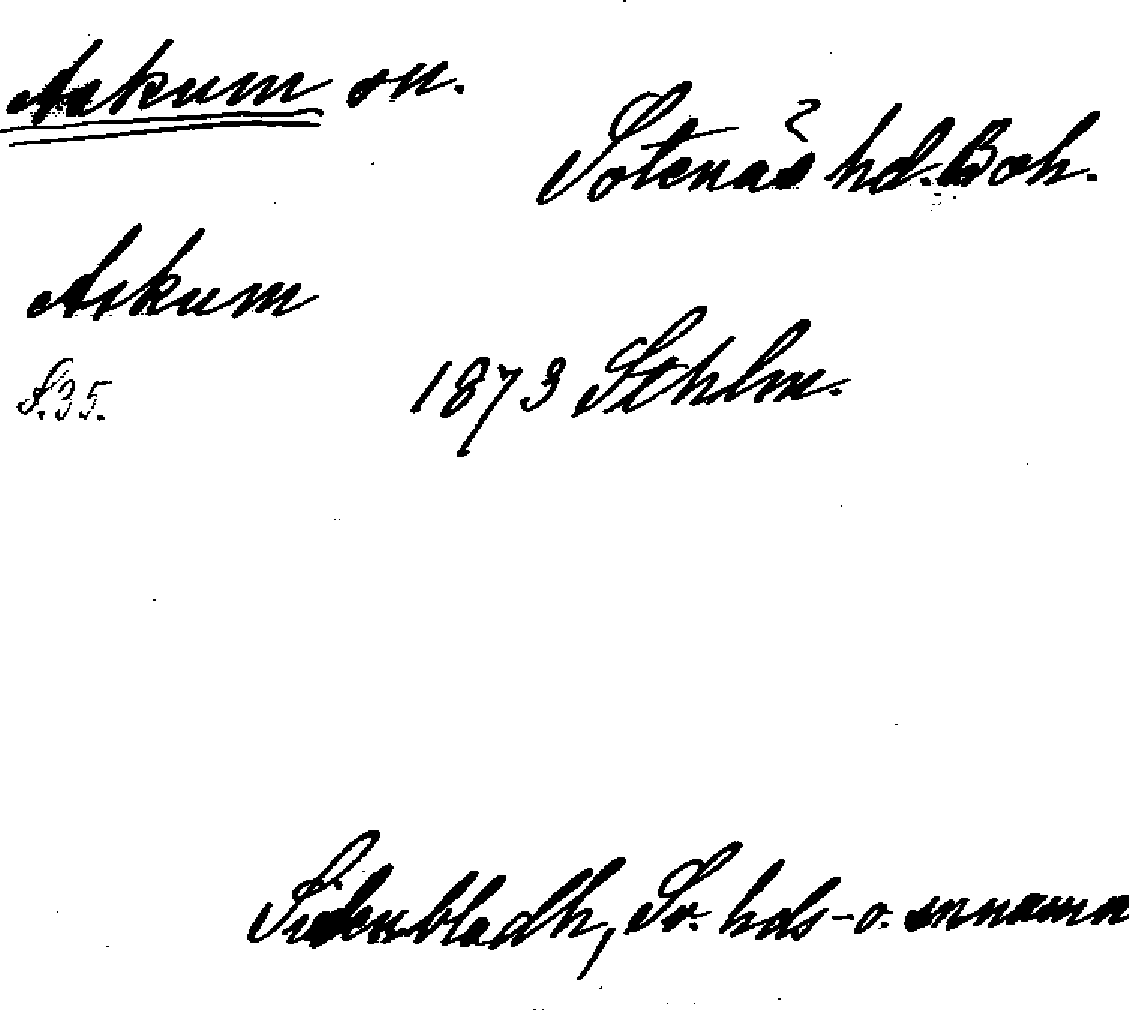 Askum sn.
Sotenäs hd. Boh.
Askum
S. 35.
1873 Sthlm.
Sidenbladh, Sv. hds- o. snnamn